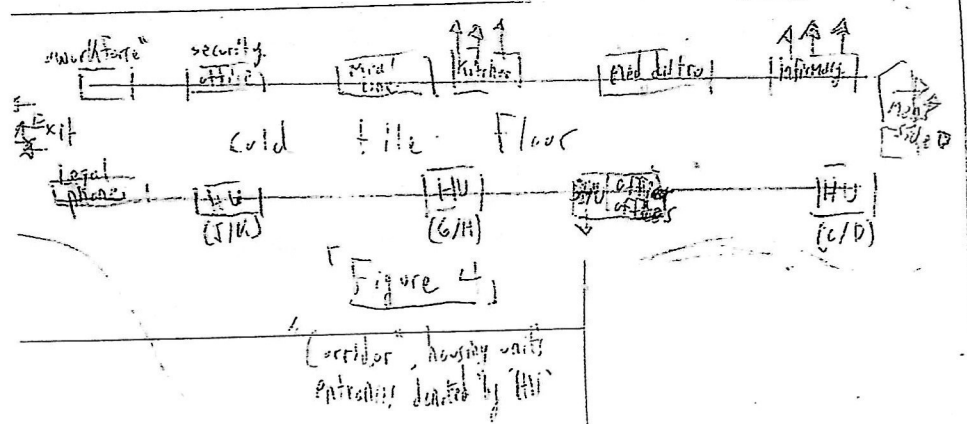 "workforce"
security
office
Kitchen
med distro
infirmary
Exit
cold tile Floor
Men's
side
legal
phone
HU
(J/K)
HU
(G/H)
offices
HU
(C/D)
Figure 4
"Corridor", housing units
entrances denoted by "HU"